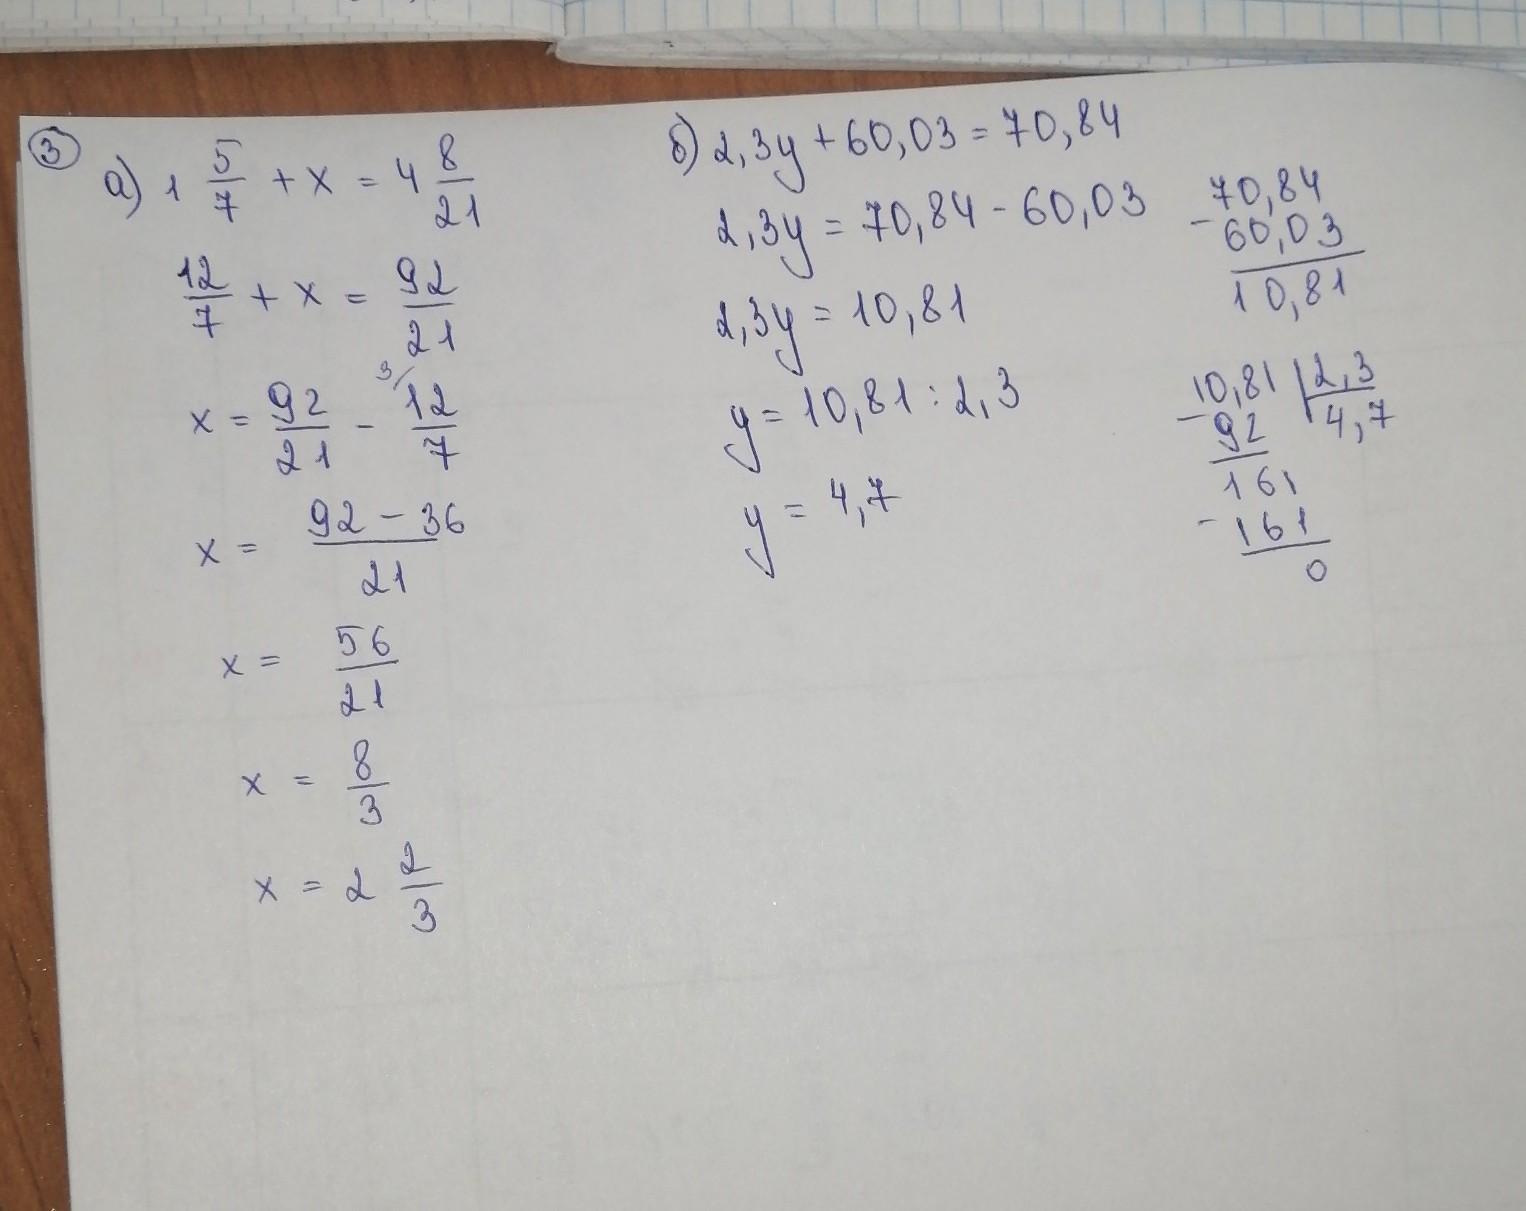 3
а) 1 5/7 + x = 4 8/21
12/7 + x = 92/21
x = 92/21 - 3/ 12/7
x = 92 - 36 / 21
x = 56/21
x = 8/3
x = 2 2/3
б) 2,3y + 60,03 = 70,84
2,3y = 70,84 - 60,03
2,3y = 10,81
y = 10,81 : 2,3
y = 4,7
70,84
- 60,03
10,81
10,81 | 2,3
- 92 4,7
161
- 161
0